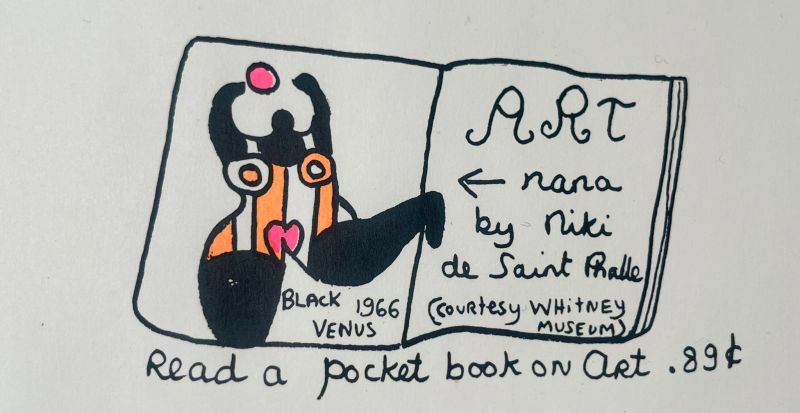 BLACK 1966
VENUS
ART
← nana
by Niki
de Saint Phalle
(COURTESY WHITNEY
MUSEUM)
Read a pocket book on Art .89¢